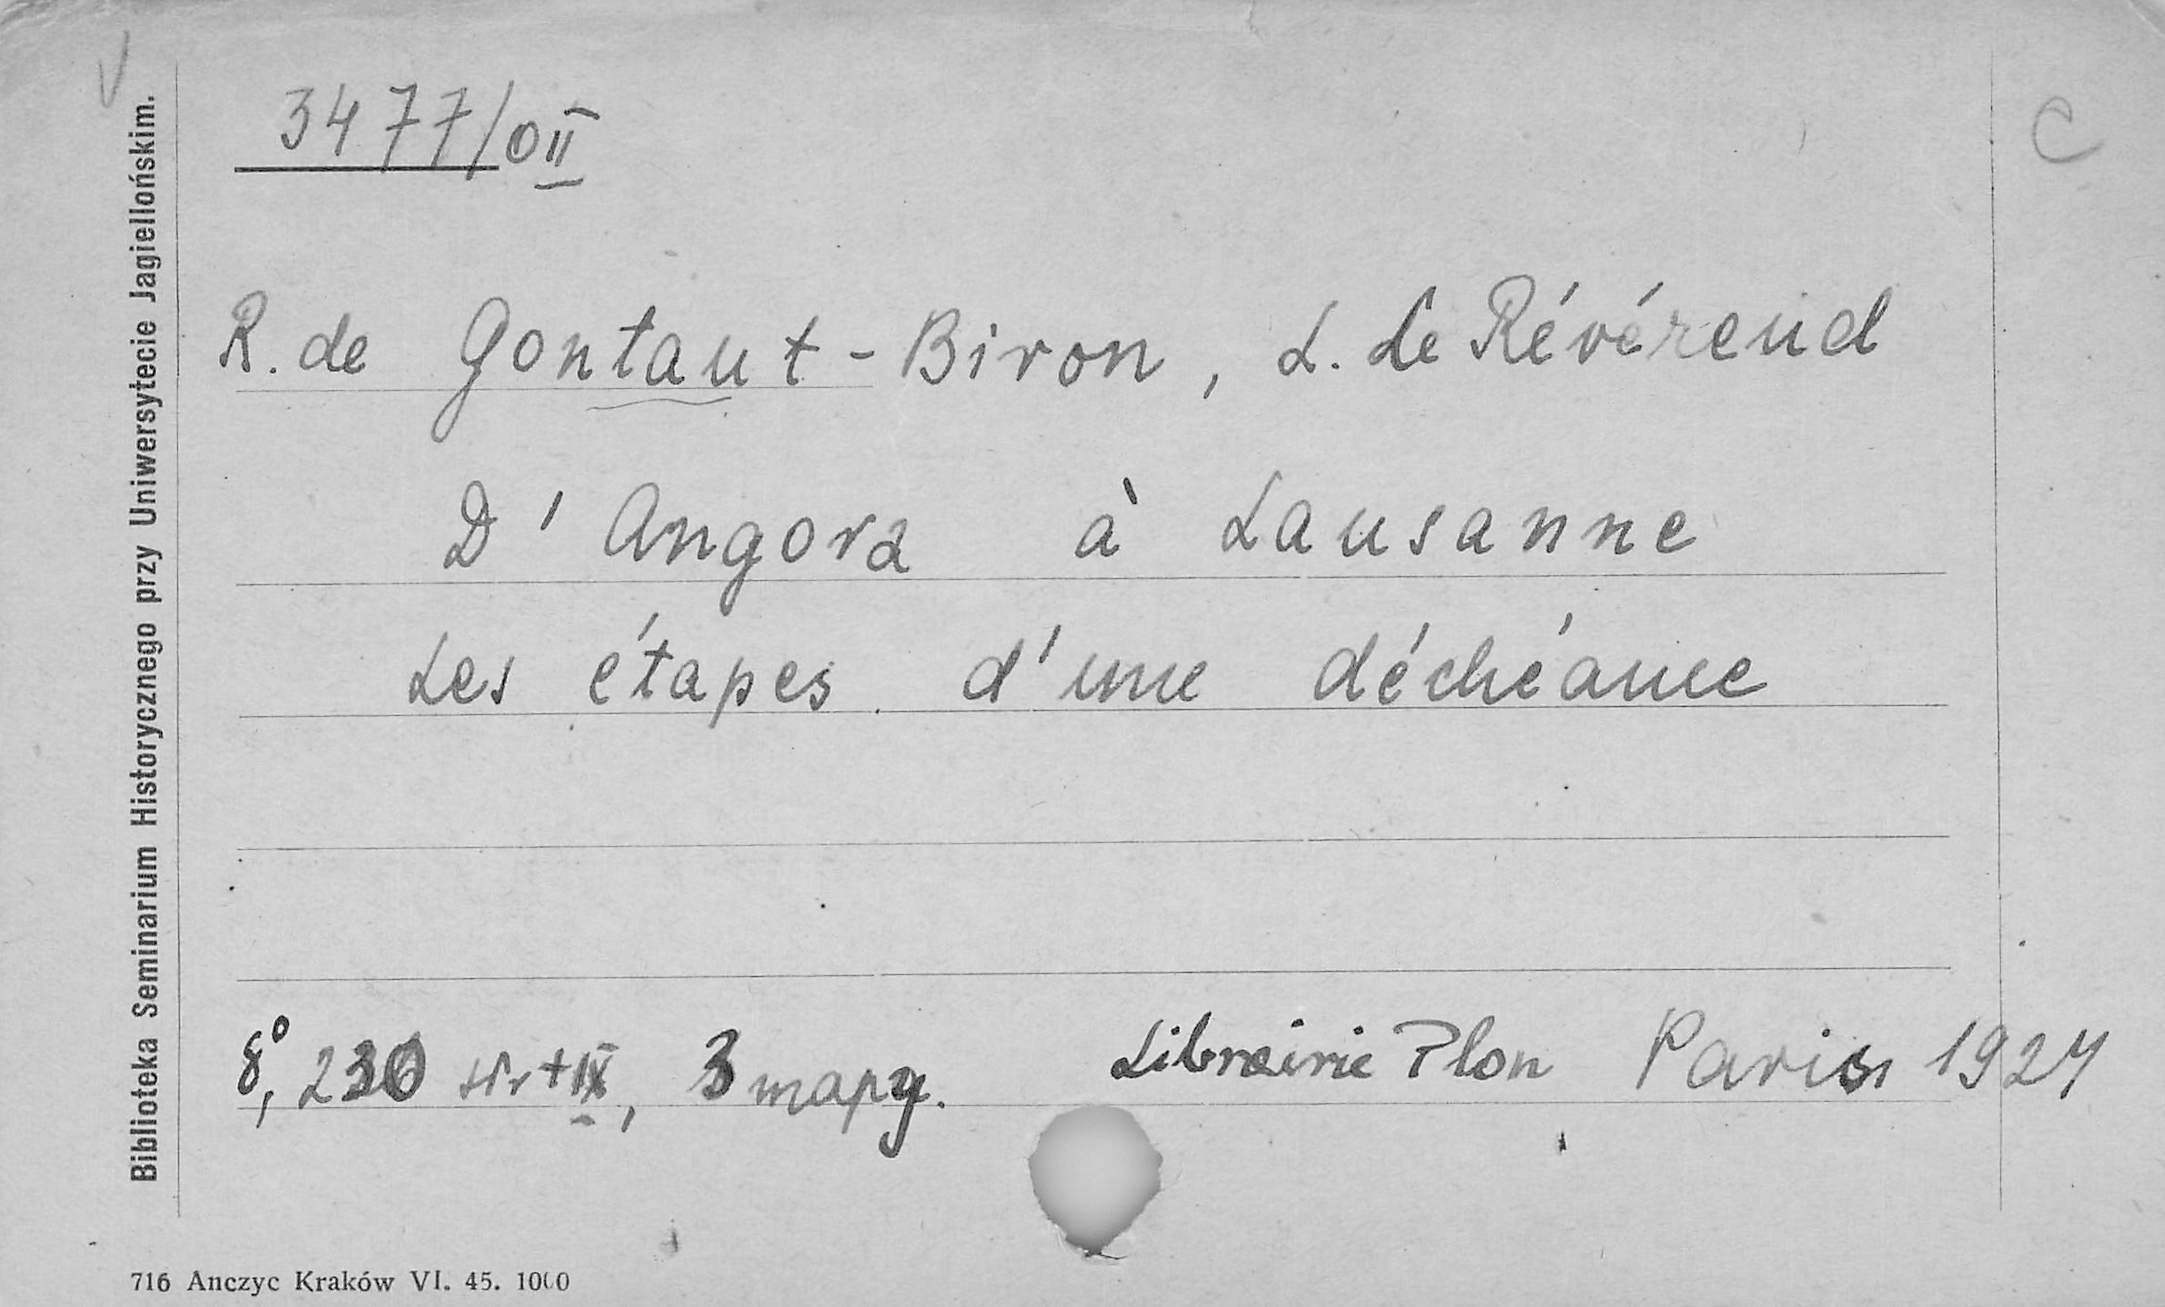 V
3477/0II
C
R. de Gontaut-Biron, L. Le Révérend
D'Angora à Lausanne
Les étapes d'une déchéance
8°, 230 str + IX, 3 mapy. Librairie Plon Paris 1924
Biblioteka Seminarium Historycznego przy Uniwersytecie Jagiellońskim.
716 Anczyc Kraków VI. 45. 1000